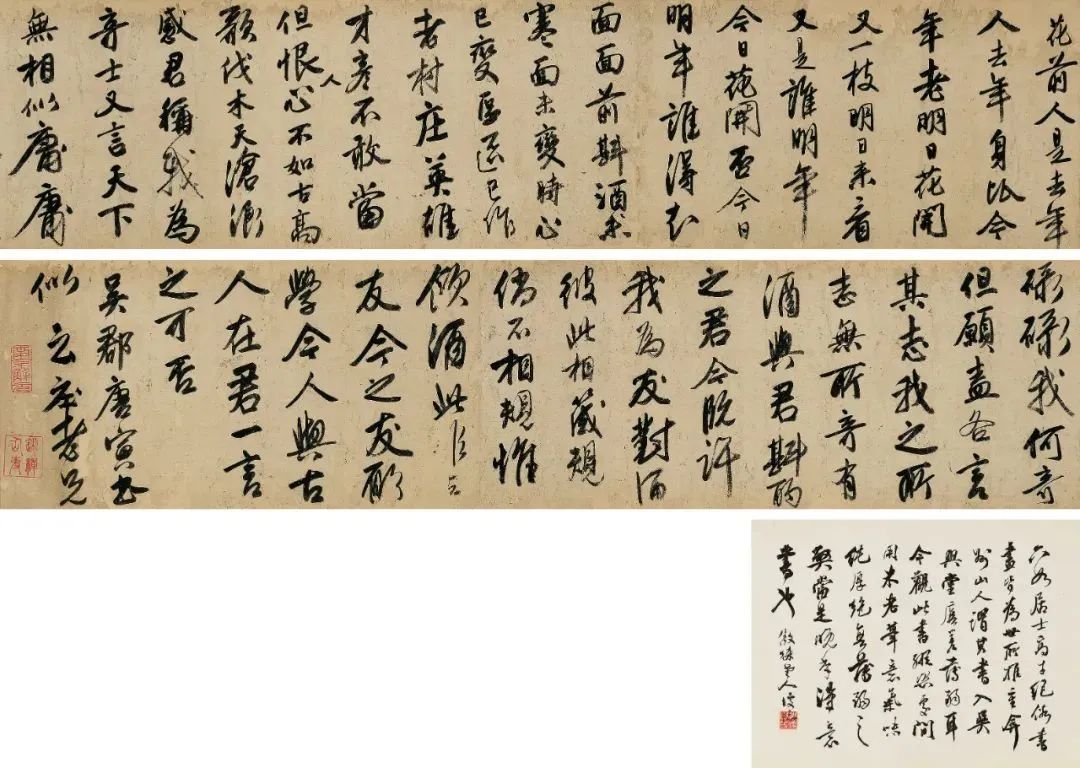 花前人是去年
人去年身比今
年老明日花開
又一枝明日来看
又是誰明年
今日花開否今日
明年誰得知
面面前斟酒未
寒面未變時心
已變區區已作
老村庄英雄
才彥不敢當
但恨人心不如古高
歌伐木天滄浪
感君稱我為
奇士又言天下
無相似庸庸
碌碌我何奇
但願盡各言
其志我之所
志無所奇有
酒與君斟酌
之君今既許
我為友對酒
彼此相箴規
倘不相規惟
傾酒此
友今之友所
學今人與古
人在君一言
之可否
吳郡唐寅书
似云莊老兄
六如居士高才絕俗書
畫皆為世所推重弇
州山人謂其書入吳
興堂廡差薄弱耳
今觀此書縱恣處間
用米老筆意氣味
純厚絕無薄弱之
弊當是晚年得意
書也